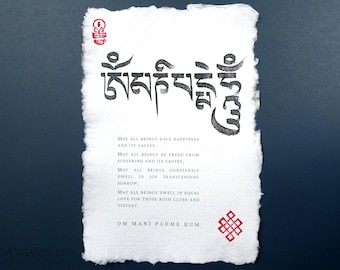 ཨོཾ་མ་ཎི་པདྨེ་ཧཱུྃ
MAY ALL BEINGS HAVE HAPPINESS
AND ITS CAUSES,
MAY ALL BEINGS BE FREED FROM
SUFFERING AND ITS CAUSES,
MAY ALL BEINGS CONSTANTLY
DWELL IN JOY TRANSCENDING
SORROW,
MAY ALL BEINGS DWELL IN EQUAL
LOVE FOR THOSE BOTH CLOSE AND
DISTANT.
OM MANI PADME HUM